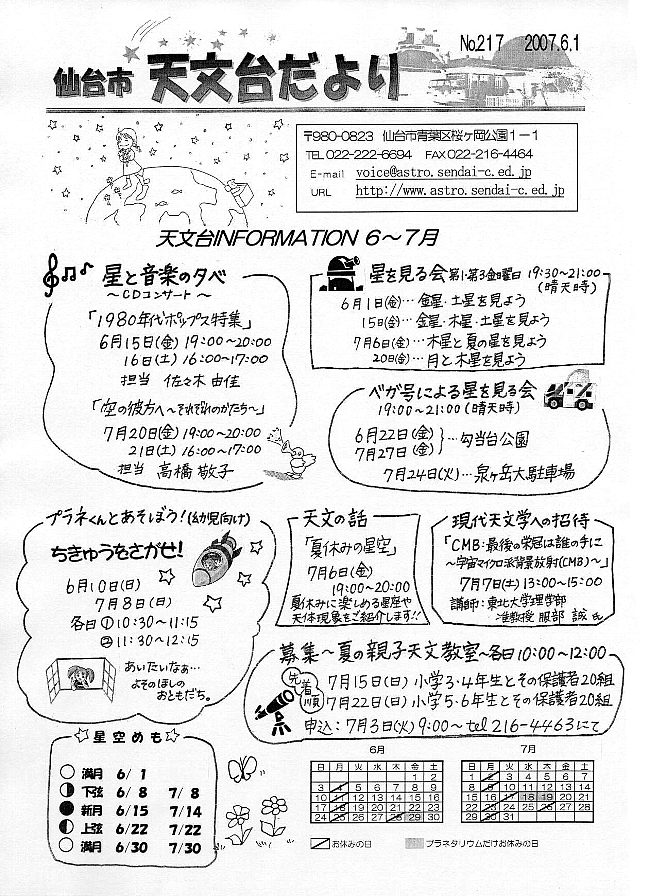 No.217 2007.6.1
仙台市 天文台だより
〒980-0823 仙台市青葉区桜ケ岡公園1-1
TEL 022-222-6694 FAX 022-216-4464
E-mail voice@astro.sendai-c.ed.jp
URL http://www.astro.sendai-c.ed.jp
天文台INFORMATION 6～7月
星と音楽の夕べ
～CDコンサート～
「1980年代ポップス特集」
6月15日(金) 19:00～20:00
16日(土) 16:00～17:00
担当 佐々木 由佳
「空の彼方へ～それぞれのかたち～」
7月20日(金) 19:00～20:00
21日(土) 16:00～17:00
担当 高橋 敬子
星を見る会 第1・第3金曜日 19:30～21:00
(晴天時)
6月1日(金)…金星・土星を見よう
15日(金)…金星・木星・土星を見よう
7月6日(金)…木星と夏の星を見よう
20日(金)…月と木星を見よう
ベガ号による星を見る会
19:00～21:00 (晴天時)
6月22日(金)
7月27日(金) }…勾当台公園
7月24日(火)…泉ヶ岳大駐車場
プラネくんとあそぼう!(幼児向け)
ちきゅうをさがせ!
6月10日(日)
7月8日(日)
各日①10:30～11:15
②11:30～12:15
あいたいなぁ…
よそのほしの
おともだち。
天文の話
「夏休みの星空」
7月6日(金)
19:00～20:00
夏休みに楽しめる星座や
天体現象をご紹介します!!
現代天文学への招待
「CMB・最後の栄冠は誰の手に
～宇宙マイクロ波背景放射(CMB)～」
7月7日(土) 13:00～15:00
講師:東北大学理学部
准教授 服部 誠 氏
募集～夏の親子天文教室～各日10:00～12:00
先着順
7月15日(日) 小学3・4年生とその保護者20組
7月22日(日) 小学5・6年生とその保護者20組
申込:7月3日(火) 9:00～tel 216-4463にて
☆星空めも☆
満月 6/1
下弦 6/8 7/8
新月 6/15 7/14
上弦 6/22 7/22
満月 6/30 7/30
6月
日 月 火 水 木 金 土
1 2
3 4 5 6 7 8 9
10 11 12 13 14 15 16
17 18 19 20 21 22 23
24 25 26 27 28 29 30
7月
日 月 火 水 木 金 土
1 2 3 4 5 6 7
8 9 10 11 12 13 14
15 16 17 18 19 20 21
22 23 24 25 26 27 28
29 30 31
お休みの日 プラネタリウムだけお休みの日